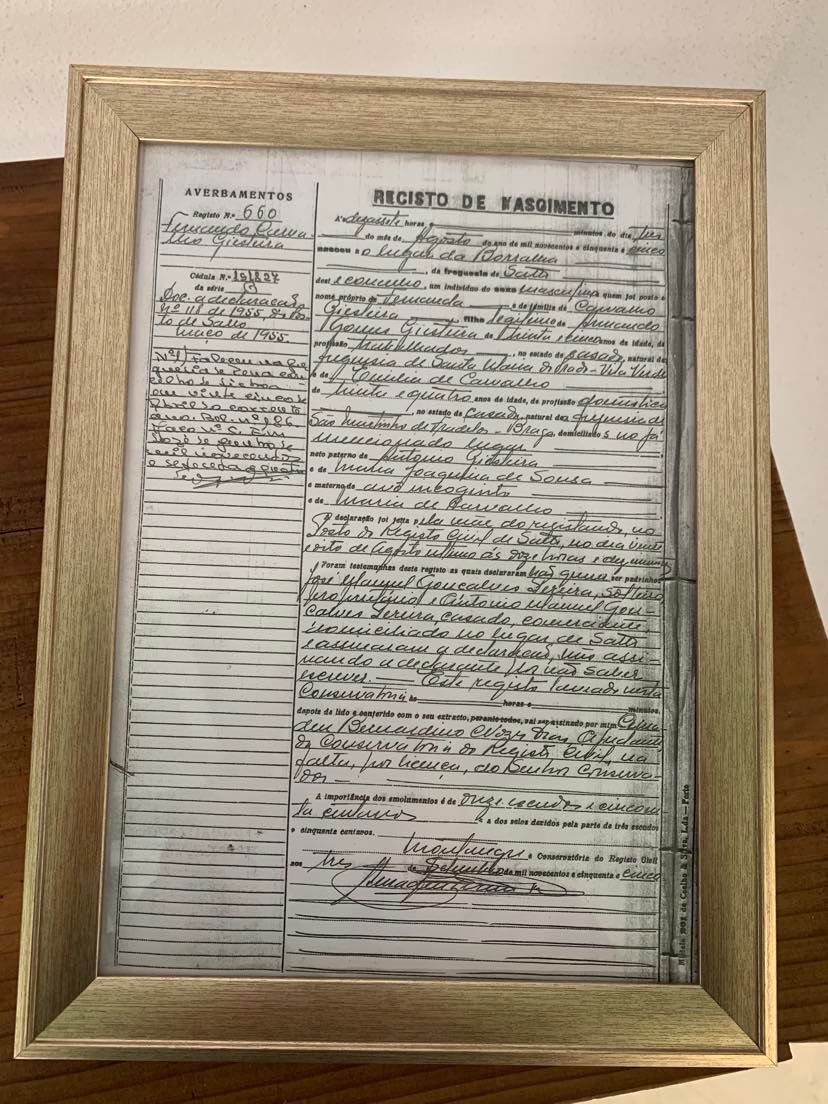 AVERBAMENTOS
Registo N.º 660
Fernando Carva-
lho Giesteira
Cédula N.º
da série
Doc. a declaração
N.º 118 de 1955, do Pos-
to de Salto
Março de 1955
N.º 1 Faleceu na fre-
guesia de Pena con-
celho de Lisboa
em vinte cinco de
Abril do corrente
ano
mil novecentos
e setenta e quatro
REGISTO DE NASCIMENTO
A's dezassete horas e minutos do dia três
do mês de Agosto do ano de mil novecentos e cinquenta e cinco
nasceu no lugar da Borralha
, da freguesia de Salto
deste concelho, um indivíduo do sexo masculino a quem foi posto o
nome próprio de Fernando e de família de Carvalho
Giesteira, filho legítimo de Armando
Gomes Giesteira de trinta e cinco anos de idade, de
profissão trabalhador, no estado de casado, natural da
freguesia de Santa Maria do Prado - Vila Verde
e de Emilia de Carvalho
de trinta e quatro anos de idade, de profissão doméstica
, no estado de casada, natural da freguesia de
São Martinho de - Braga, domiciliados no já
mencionado lugar
neto paterno de António Giesteira
e de Maria Joaquina de Sousa
e materno de avô incógnito
e de Maria de Carvalho
A declaração foi feita pela mãe do registando, no
Posto do Registo Civil de Salto, no dia vinte
oito de Agosto último ás doze horas e dez minutos
Foram testemunhas deste registo as quais declararam não querer ser padrinhos
José Manuel Gonçalves Pereira, solteiro,
proprietário e António Manuel Gon-
çalves Pereira casado, comerciante,
domiciliado no lugar de Salto
e assinaram a declaração, não assi-
nando a declarante por não saber
escrever. — Este registo lavrado nesta
Conservatória às horas e minutos.
depois de lido e conferido com o seu extracto, perante todos, vai ser assinado por mim
Bernardino Dias Ajudante
da Conservatória do Registo Civil, na
falta, por licença, do Senhor Conserva-
dor
A importância dos emolumentos é de onze escudos e cincoen-
ta centavos e a dos selos devidos pela parte de três escudos
e cinquenta centavos.
Montalegre e Conservatória do Registo Civil
aos três de Setembro de mil novecentos e cinquenta e cinco